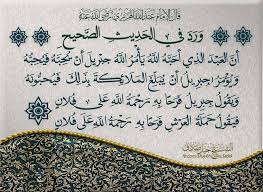 ورد في الحديث الصحيح
أن العبد الذي أحبه الله يأمر الله جبريل أن نحبه فيحبه
ويؤمر جبريل أن يبلغ الملائكة بذلك فيحبونه
ويقول جبريل فرحا به رحمة الله على فلان
فيقول حملة العرش فرحا به رحمة الله على فلان